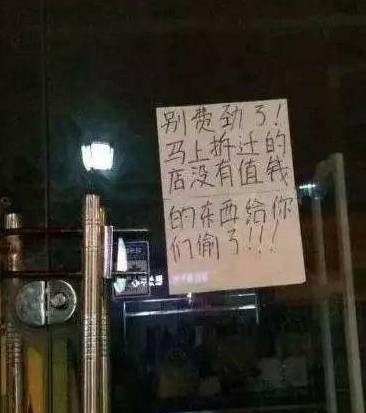 别费劲了!
马上拆迁的
店没有值钱
的东西给你
们偷了!!!